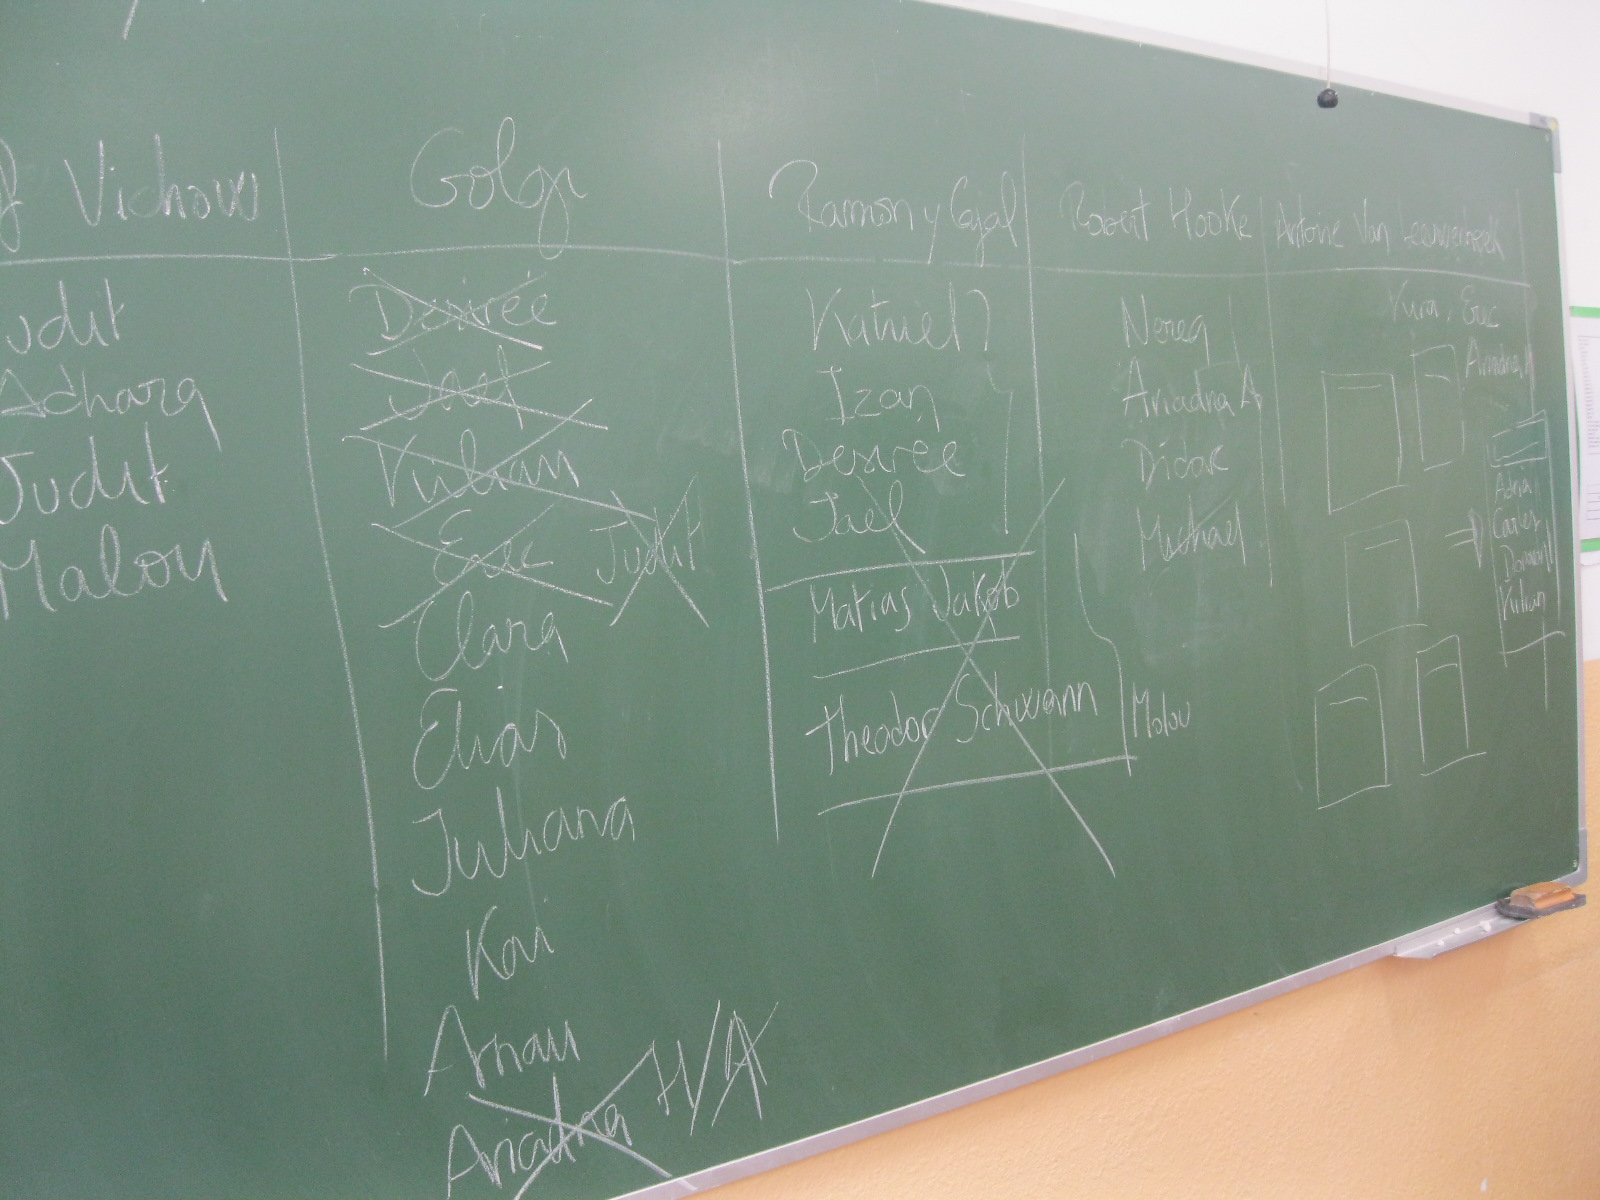 f Vichow
Judit
Adhara
Judit
Malou
Golgi
Desirée
Jael
Yulian
Eric Judit
Clara
Elias
Juliana
Kai
Arnau
Ariadna H/A
Ramon y Cajal
Katniel?
Izan
Desirée
Jael
Matias Jakob
Theodor Schwann
Robert Hooke
Nerea
Ariadna A
Dídac
Michael
Malou
Antoine Van Leeuwenhoek
Yura, Eric
Ariadna H
Adria
Carles
Yulian